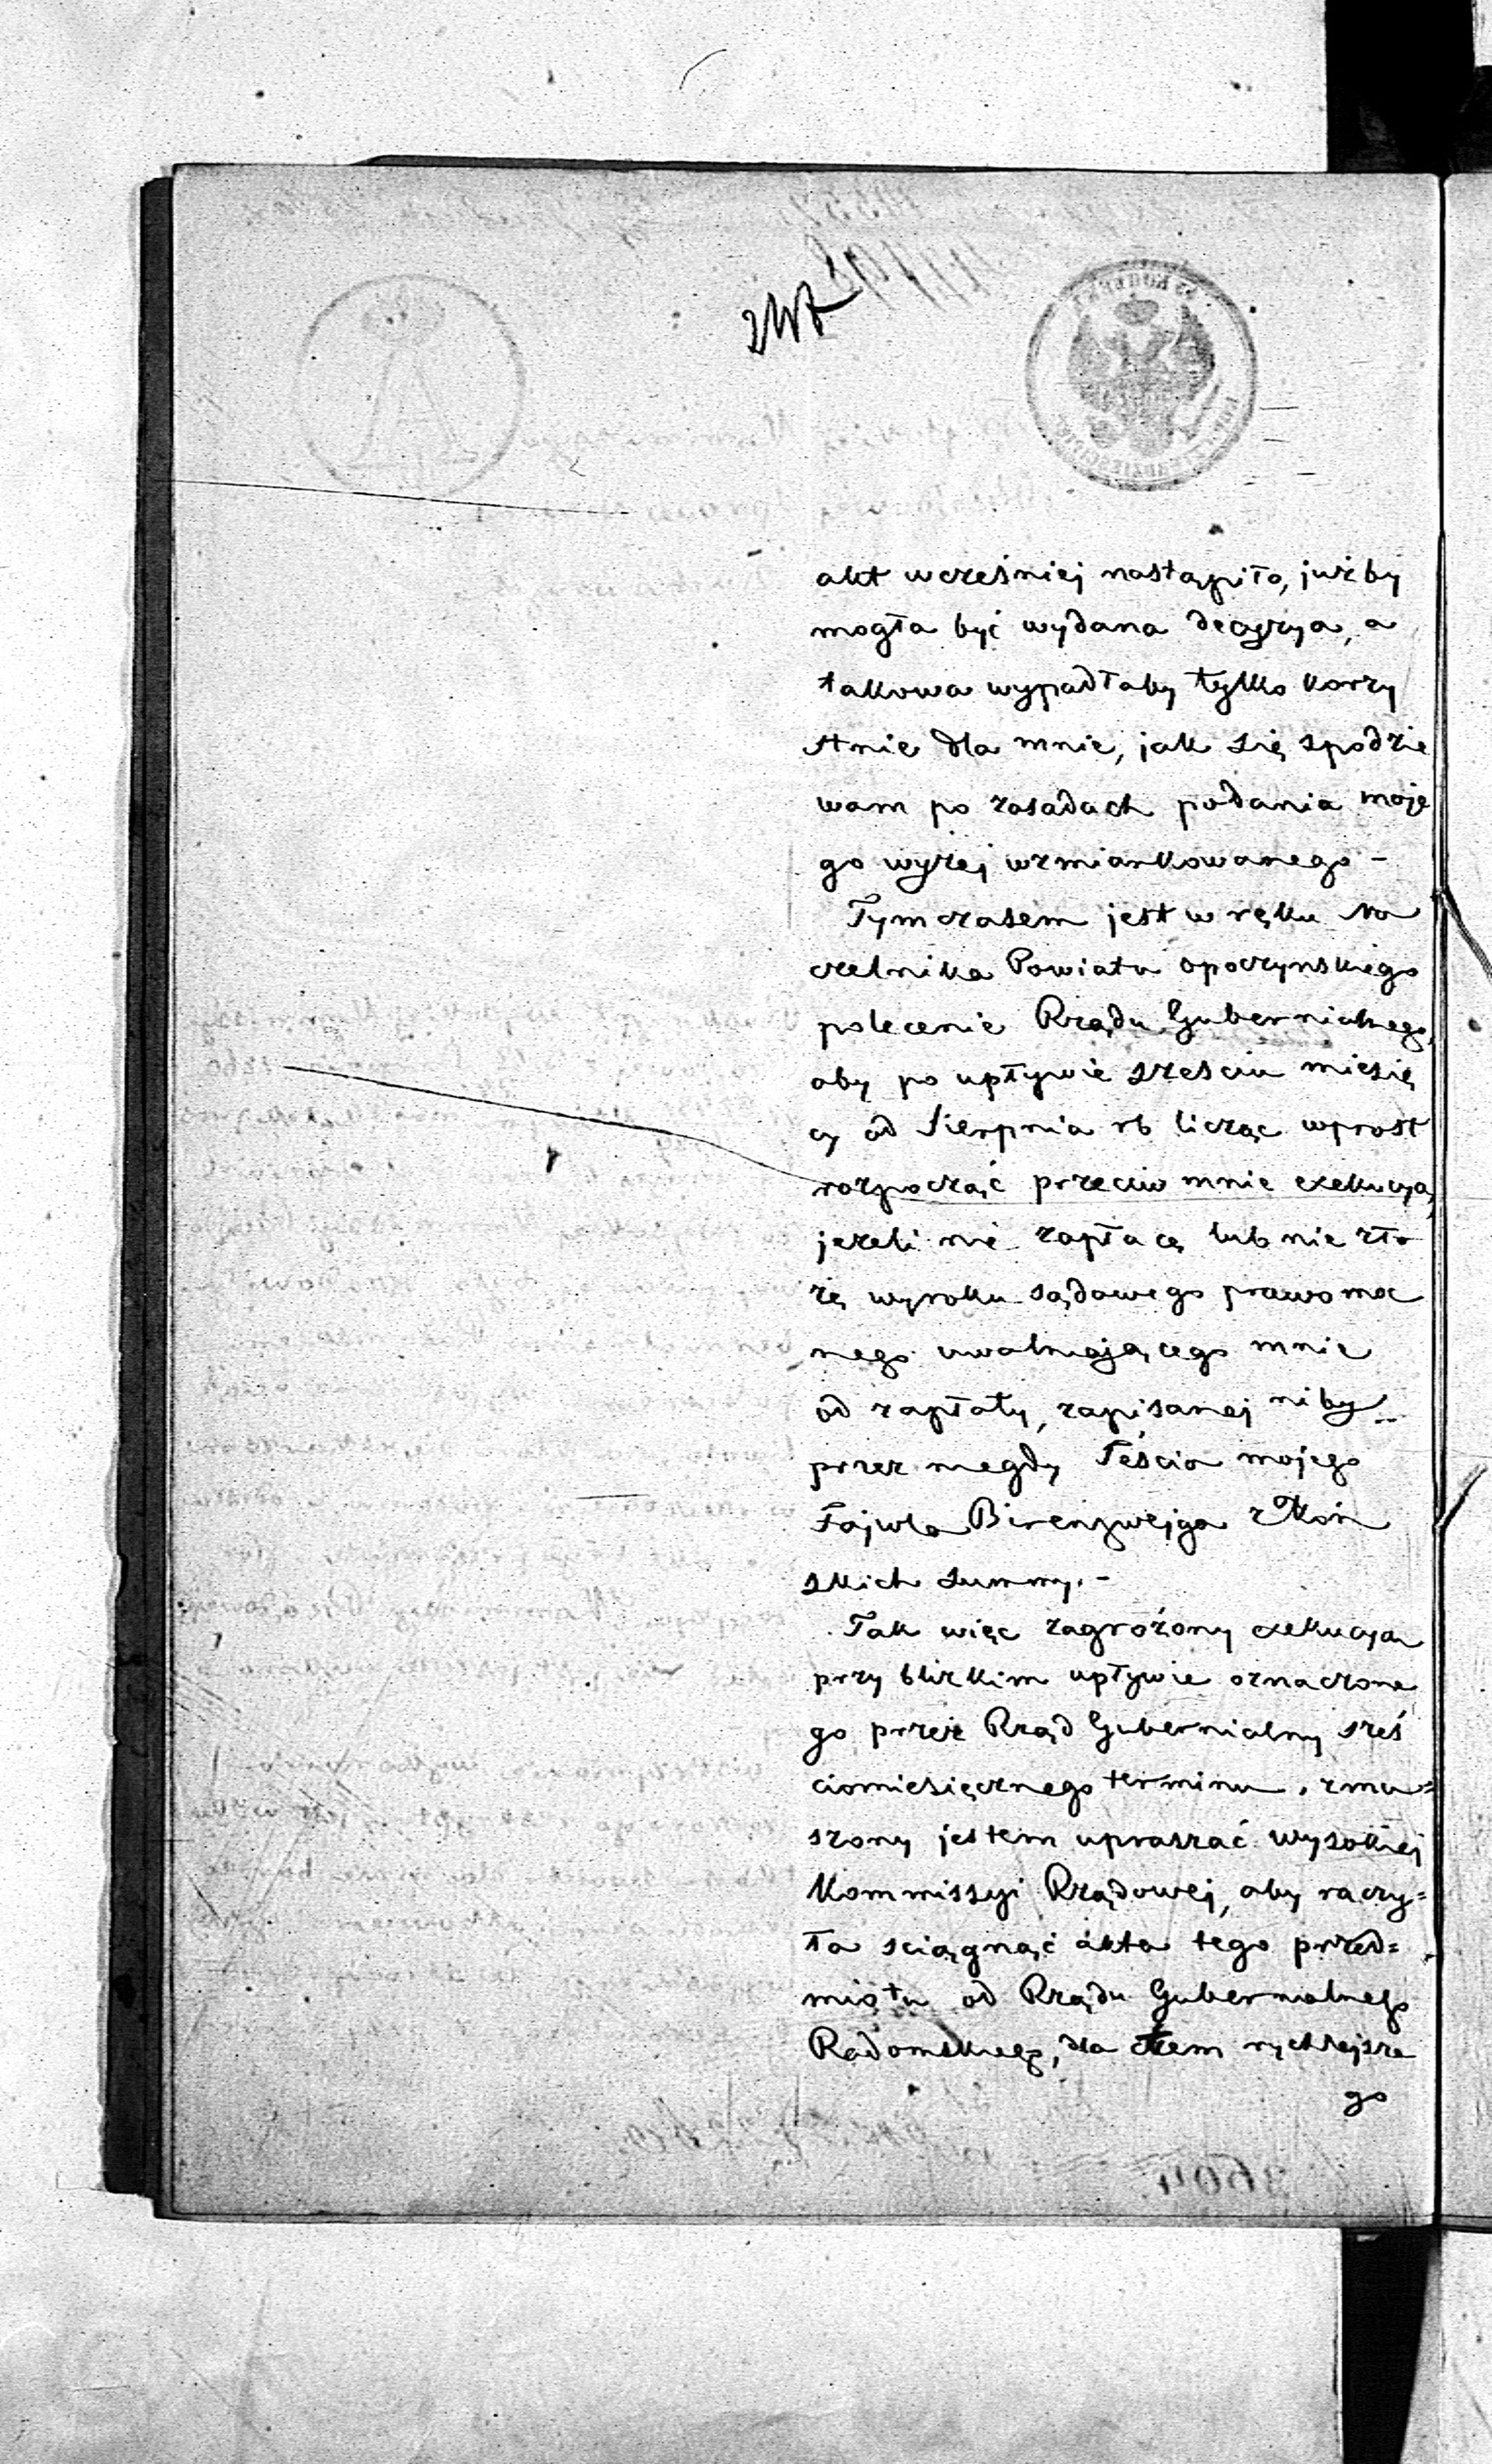 akt wcześniej nastąpiło, jużby
mogła być wydana decyzya, a
takowa wypadłaby tylko korzy
stnie dla mnie, jak się spodzie
wam po zasadach podania moje
go wyżej wzmiankowanego -
Tymczasem jest w ręku Na
czelnika Powiatu opoczynskiego
polecenie Rządu Gubernialnego,
aby po upływie sześciu miesię
cy od Sierpnia rb licząc wprost
rozpocząć przeciw mnie exekucyą,
jeżeli nie zapłacę lub nie zło
żę wyroku sądowego prawomoc
nego uwalniającego mnie
od zapłaty, zapisanej niby
przez niegdy Teścia mojego
Fajwla Birenzwejga z Koń
skich Summy. -
Tak więc zagrożony exekucya
przy blizkim upływie oznaczone
go przez Rząd Gubernialny sześ
ciomiesięcznego terminu, zmu=
szony jestem upraszać wysokiej
Kommissyi Rządowej, aby raczy=
ła sciągnąć akta tego przed=
miotu od Rządu Gubernialnego
Radomskiego, dla tem rychlejsze
go